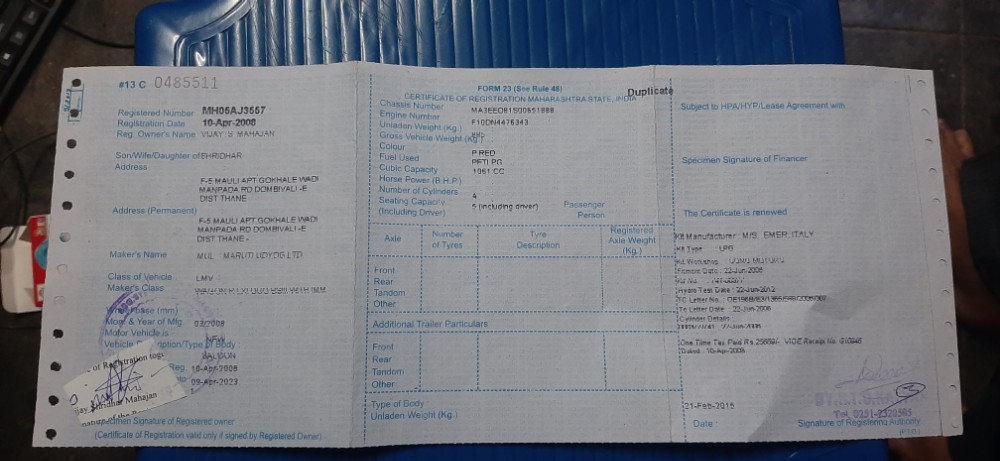 #13 C 0485511
Registered Number MH05AJ3557
Registration Date 10-Apr-2008
Reg. Owner's Name VIJAY S MAHAJAN
Son/Wife/Daughter of SHRIDHAR
Address
F-5 MAULI APT GOKHALE WADI
MANPADA RD DOMBIVALI -E
DIST THANE
Address (Permanent)
F-5 MAULI APT GOKHALE WADI
MANPADA RD DOMBIVALI -E
DIST THANE -
Maker's Name MUL - MARUTI UDYOG LTD
Class of Vehicle LMV
Maker's Class
base (mm)
Mon. & Year of Mfg. 03/2008
Motor Vehicle is NEW
Vehicle Description/Type of Body :
SALOON
Reg. 10-Apr-2008
to 09-Apr-2023
of Registration
Shridhar Mahajan
Specimen Signature of Registered owner
(Certificate of Registration valid only if signed by Registered Owner)
FORM 23 (See Rule 48)
Duplicate
CERTIFICATE OF REGISTRATION MAHARASHTRA STATE, INDIA
Chassis Number
Engine Number F10DN4476343
Unladen Weight (Kg.)
Gross Vehicle Weight (Kg.)
Colour P.RED
Fuel Used
Cubic Capacity 1061 CC
Horse Power (B.H.P.)
Number of Cylinders 4
Seating Capacity 5 (Including driver) Passenger
(Including Driver) Person
Axle Number of Tyres Tyre Description Registered Axle Weight (Kg.)
Front
Rear
Tandom
Other
Additional Trailer Particulars
Front
Rear
Tandom
Other
Type of Body
Unladen Weight (Kg.)
Subject to HPA/HYP/Lease Agreement with
Specimen Signature of Financer
The Certificate is renewed
Kit Manufacturer : M/S. EMER, ITALY
Kit Type : LPG
Kit Workshop
Fitment Date : 22-Jun-2008
Kit No.
Hydro Test Date : 22-Jun-2012
TC Letter No. :
Tc Letter Date : 22-Jun-2006
Cylinder Details
One Time Tax Paid Rs. VIDE Receipt No.
Dated : 10-Apr-2008
21-Feb-2015
Tel. 0251-2320505
Date : Signature of Registering Authority